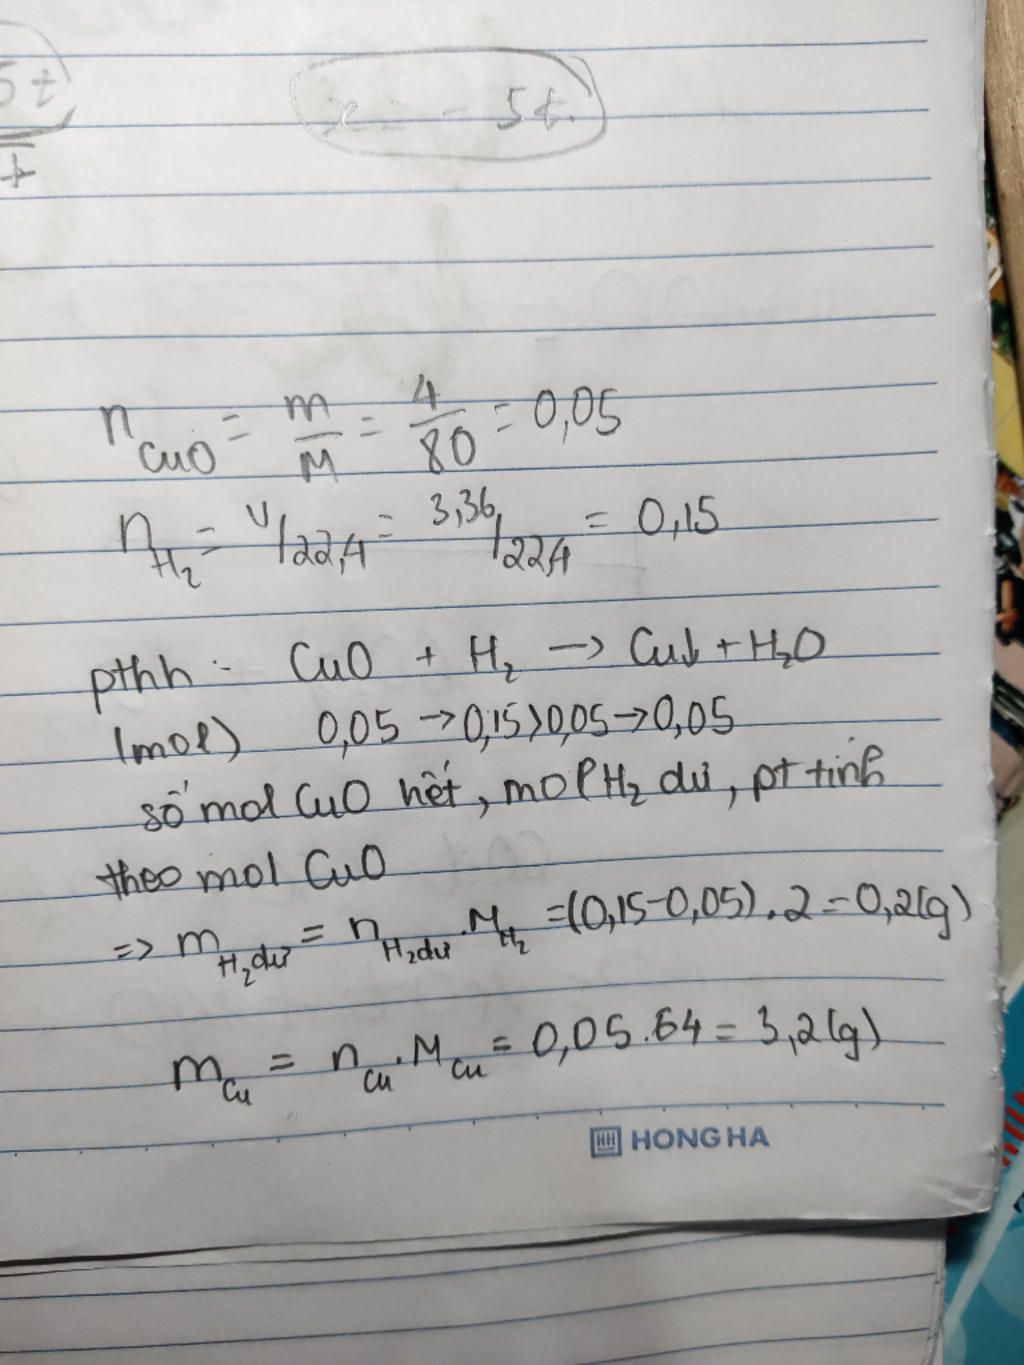 5t
x = - 5t.
n CuO = m/M = 4/80 = 0,05
n H₂ = V/22,4 = 3,36/22,4 = 0,15
pthh : CuO + H₂ → Cu↓ + H₂O
(mol) 0,05 → 0,15>0,05→0,05
số mol CuO hết, mol H₂ dư, pt tính
theo mol CuO
=> m H₂dư = n H₂dư . M H₂ = (0,15-0,05) . 2 = 0,2(g)
m Cu = n Cu . M Cu = 0,05.64 = 3,2(g)
HH HONG HA